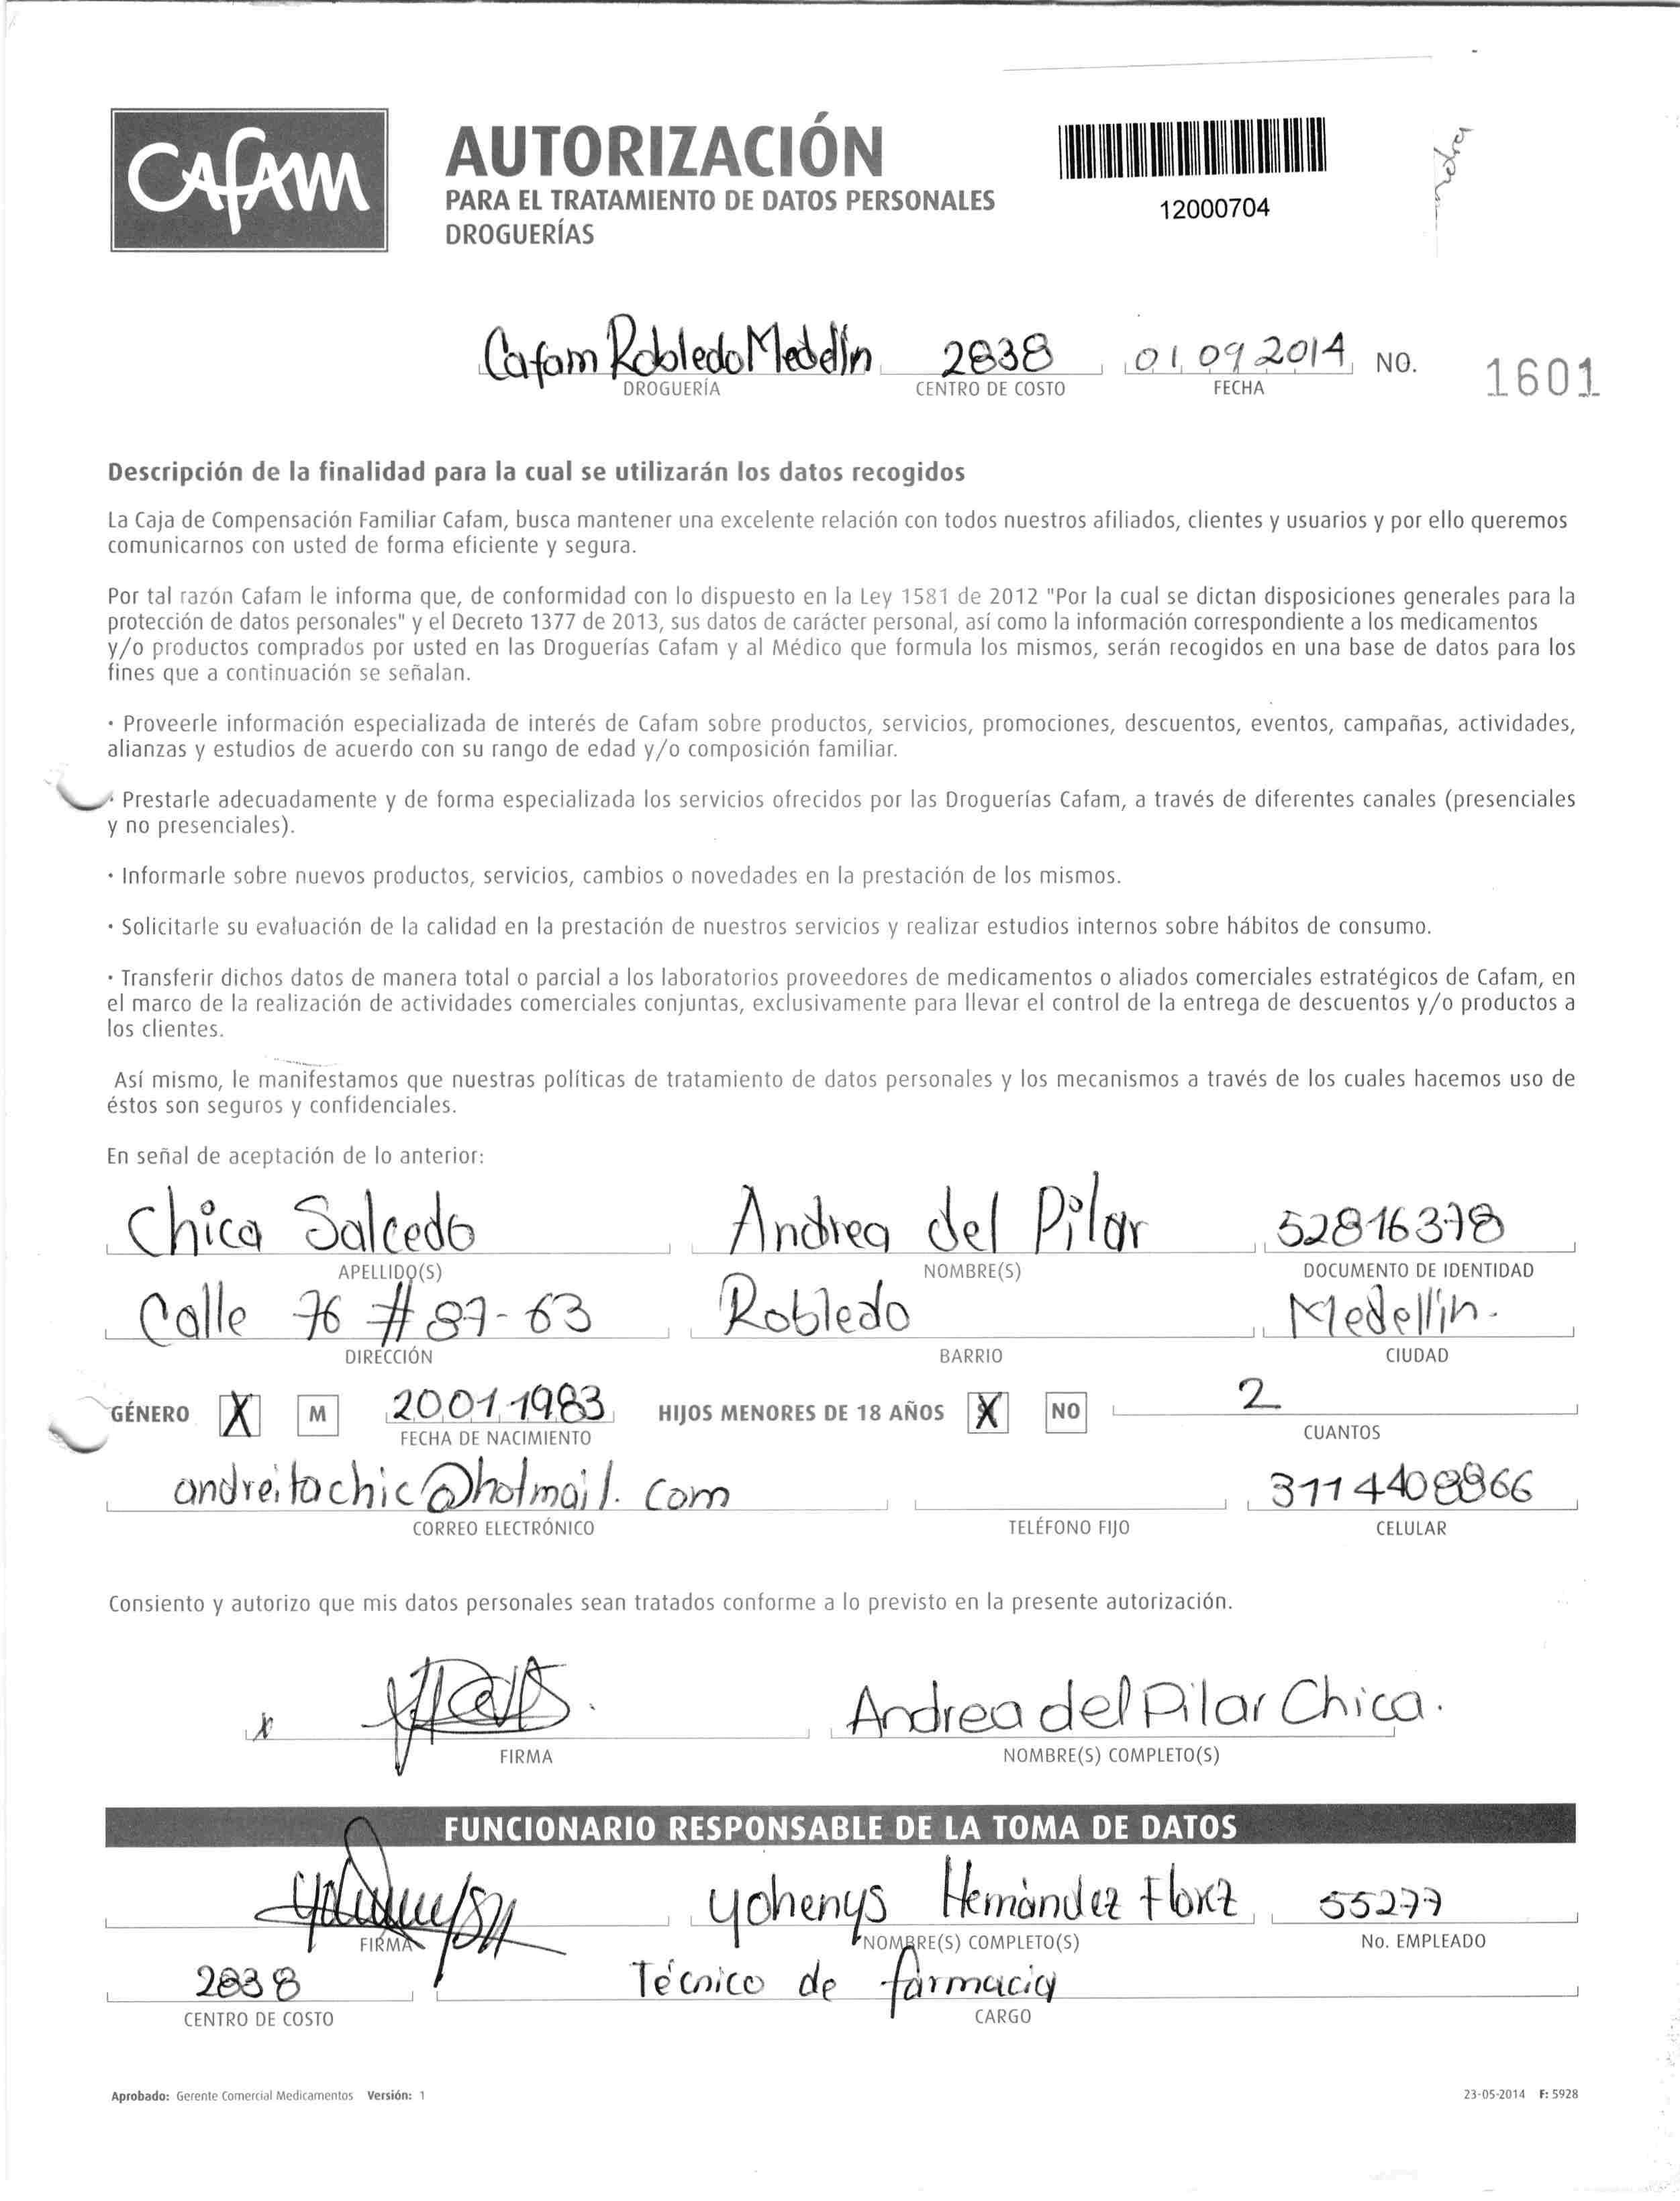 Cafam
AUTORIZACIÓN
PARA EL TRATAMIENTO DE DATOS PERSONALES
DROGUERÍAS
12000704
Cafam Robledo Medellin 2838 01 09 2014 NO. 1601
DROGUERÍA CENTRO DE COSTO FECHA
Descripción de la finalidad para la cual se utilizarán los datos recogidos
La Caja de Compensación Familiar Cafam, busca mantener una excelente relación con todos nuestros afiliados, clientes y usuarios y por ello queremos
comunicarnos con usted de forma eficiente y segura.
Por tal razón Cafam le informa que, de conformidad con lo dispuesto en la Ley 1581 de 2012 "Por la cual se dictan disposiciones generales para la
protección de datos personales" y el Decreto 1377 de 2013, sus datos de carácter personal, así como la información correspondiente a los medicamentos
y/o productos comprados por usted en las Droguerías Cafam y al Médico que formula los mismos, serán recogidos en una base de datos para los
fines que a continuación se señalan.
· Proveerle información especializada de interés de Cafam sobre productos, servicios, promociones, descuentos, eventos, campañas, actividades,
alianzas y estudios de acuerdo con su rango de edad y/o composición familiar.
· Prestarle adecuadamente y de forma especializada los servicios ofrecidos por las Droguerías Cafam, a través de diferentes canales (presenciales
y no presenciales).
· Informarle sobre nuevos productos, servicios, cambios o novedades en la prestación de los mismos.
· Solicitarle su evaluación de la calidad en la prestación de nuestros servicios y realizar estudios internos sobre hábitos de consumo.
· Transferir dichos datos de manera total o parcial a los laboratorios proveedores de medicamentos o aliados comerciales estratégicos de Cafam, en
el marco de la realización de actividades comerciales conjuntas, exclusivamente para llevar el control de la entrega de descuentos y/o productos a
los clientes.
Así mismo, le manifestamos que nuestras políticas de tratamiento de datos personales y los mecanismos a través de los cuales hacemos uso de
éstos son seguros y confidenciales.
En señal de aceptación de lo anterior:
Chica Salcedo Andrea del Pilar 52816378
APELLIDO(S) NOMBRE(S) DOCUMENTO DE IDENTIDAD
Calle 76 # 87-63 Robledo Medellin.
DIRECCIÓN BARRIO CIUDAD
GÉNERO X M 20 01 1983 HIJOS MENORES DE 18 AÑOS X NO 2
FECHA DE NACIMIENTO CUANTOS
andreitachic@hotmail.com 3114408866
CORREO ELECTRÓNICO TELÉFONO FIJO CELULAR
Consiento y autorizo que mis datos personales sean tratados conforme a lo previsto en la presente autorización.
x Andrea del Pilar Chica.
FIRMA NOMBRE(S) COMPLETO(S)
FUNCIONARIO RESPONSABLE DE LA TOMA DE DATOS
Yohenys Hernández Florez 55277
FIRMA NOMBRE(S) COMPLETO(S) No. EMPLEADO
2838 Técnico de farmacia
CENTRO DE COSTO CARGO
Aprobado: Gerente Comercial Medicamentos Versión: 1 23-05-2014 F: 5928